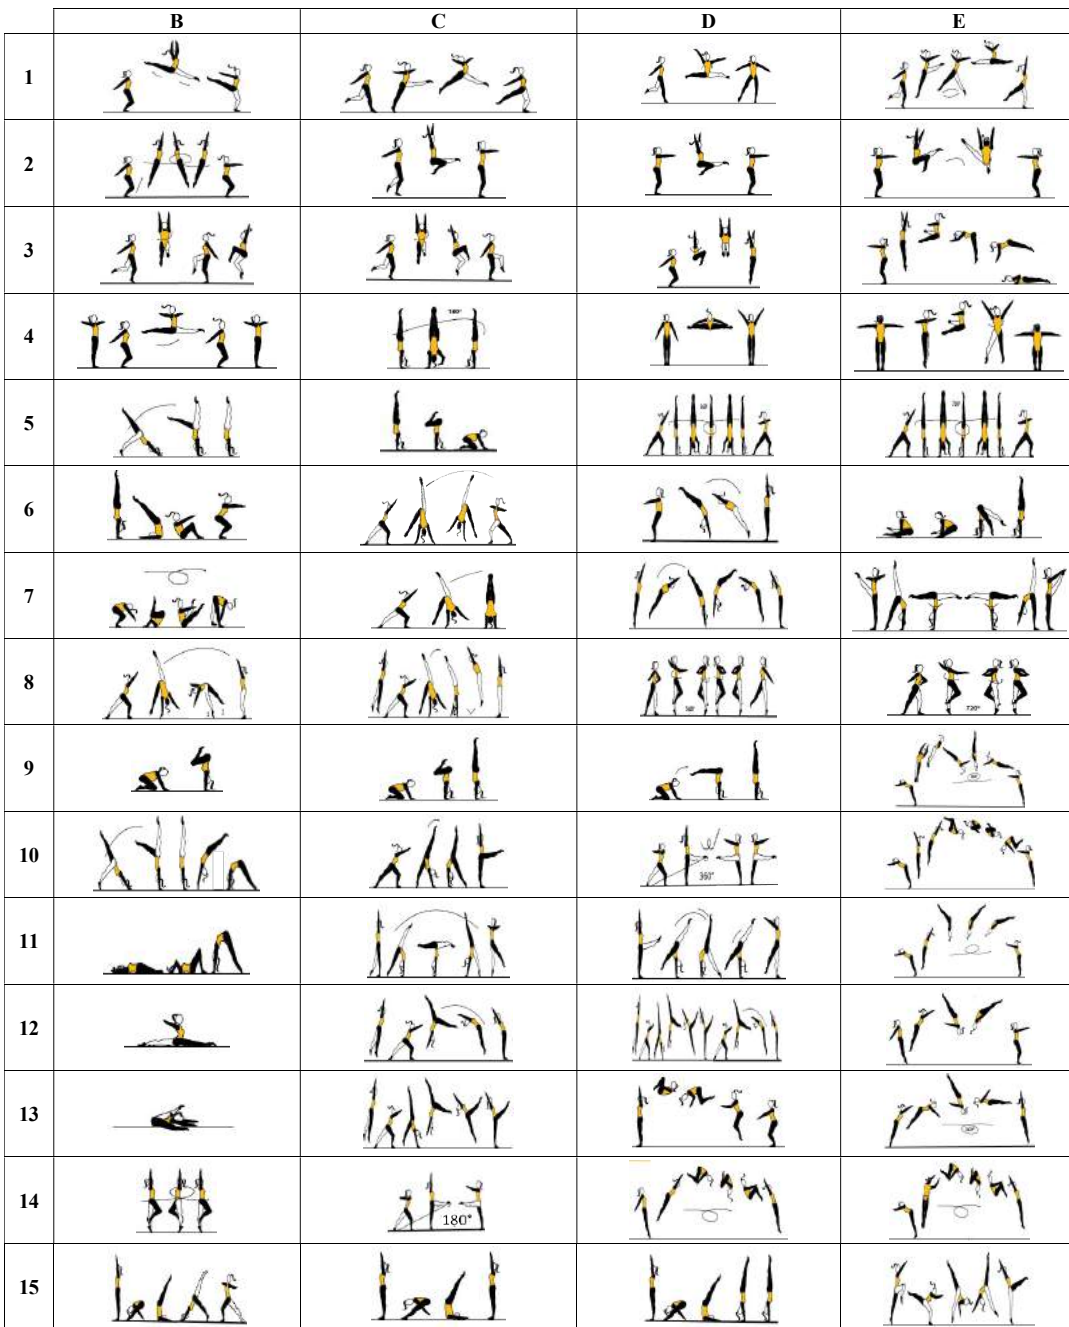 B C D E
1
2
3
4
180°
5
6
7
8
720°
9
10
360°
11
12
13
14
180°
15